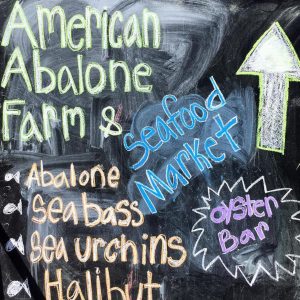 American
Abalone
Farm &
Seafood
Market
Abalone
Sea bass
Sea urchins
Halibut
Oyster
Bar